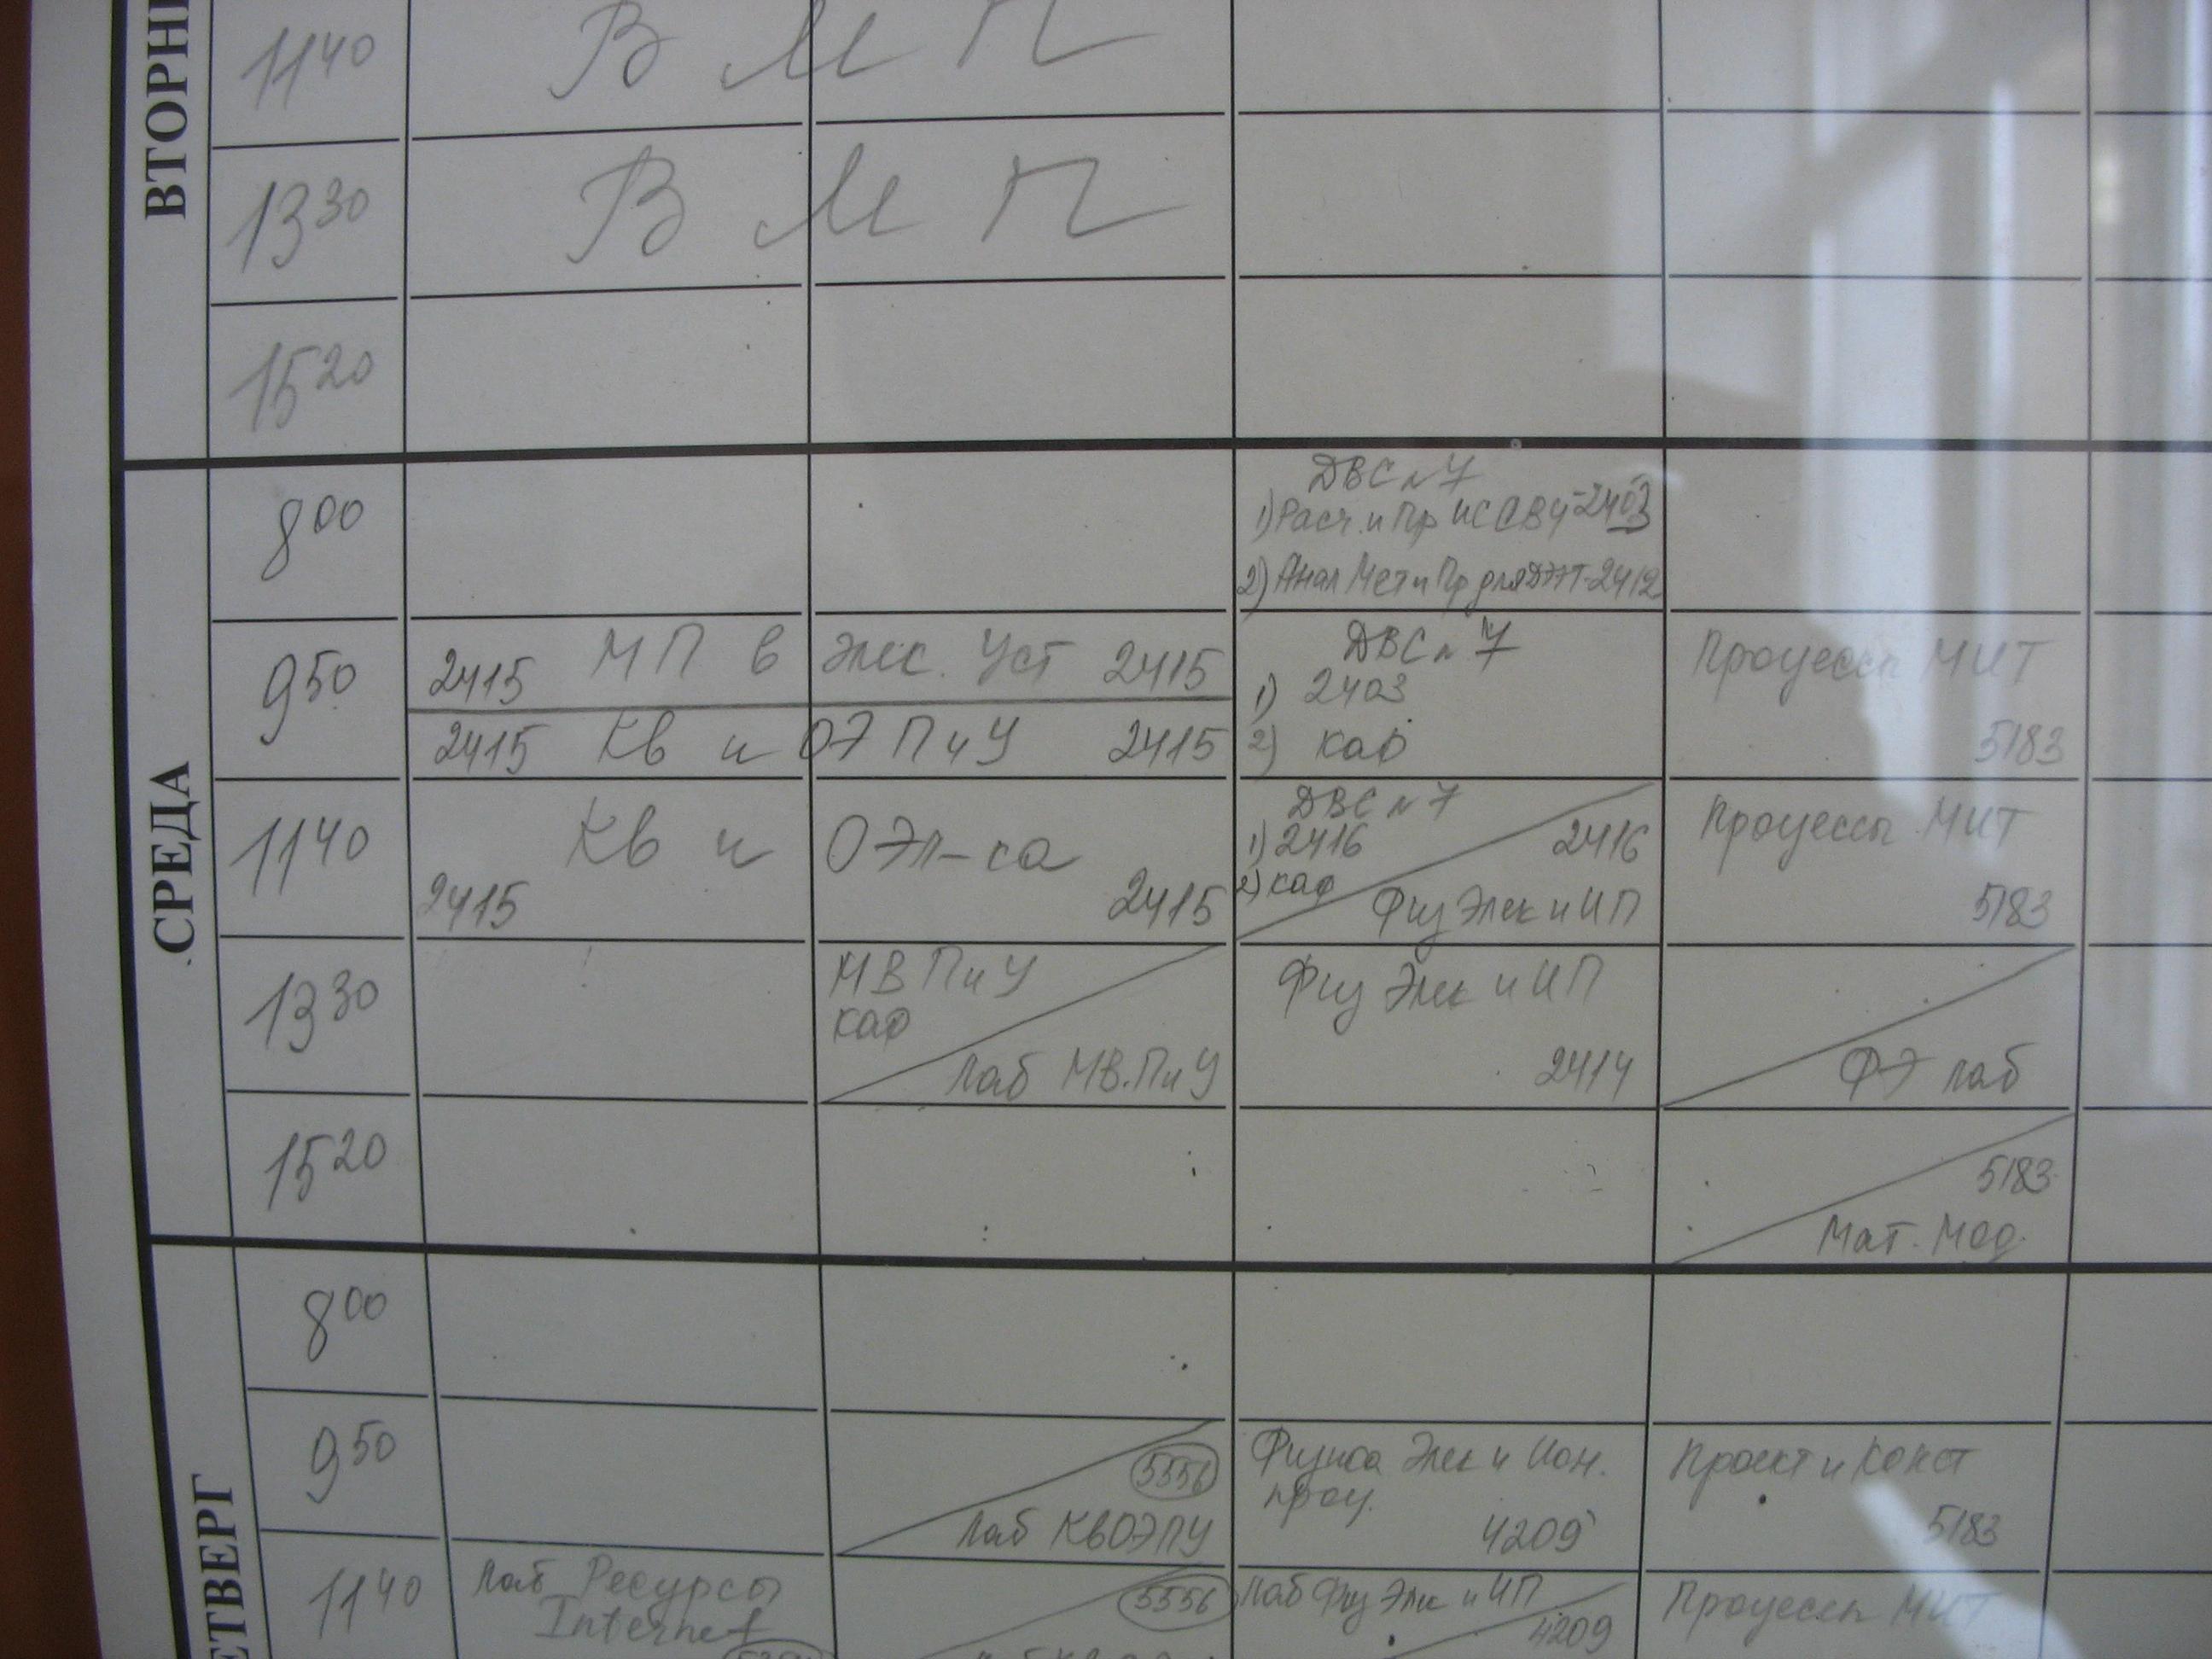 ВТОРН
11 40
В М П
13 30
В М П
15 20
СРЕДА
8 00
ДВС № 7
1) Расч. и Пр ИС СВЧ-2403
2) Анал Мет и Пр для ДЭТ-2412
9 50
2415 МП в Элек. Уст 2415
2415 Кв и ОЭ П и У 2415
ДВС № 7
1) 2403
2) каф
Процессы МИТ
5183
11 40
Кв и ОЭл-ка
2415 2415
ДВС № 7
1) 2416
2) каф
2416
Физ Элек и ИП
Процессы МИТ
5183
13 30
МВ П и У
каф
Лаб МВ.П и У
Физ Элек и ИП
2414
ФЭ лаб
15 20
5183
Мат. Мод.
ЕТВЕРГ
8 00
9 50
5556
Лаб КвОЭПУ
Физика Элек и Ион.
проц.
4209
Проект и Конст
5183
11 40
Лаб Ресурсы
Internet
5556
Лаб Физ Элек и ИП
4209
Процессы МИТ